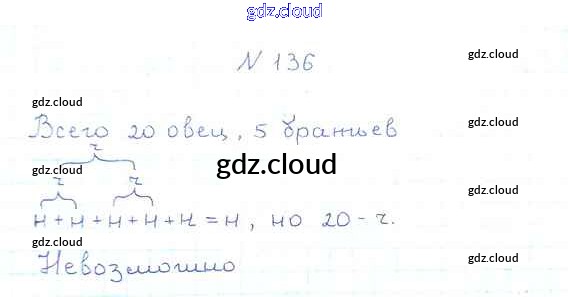 gdz.cloud
N 136
gdz.cloud
gdz.cloud
Всего 20 овец, 5 братьев
gdz.cloud
ч
gdz.cloud
gdz.cloud
ч ч
gdz.cloud
н + н + н + н + н = н, но 20 - ч.
gdz.cloud
Невозможно
gdz.cloud